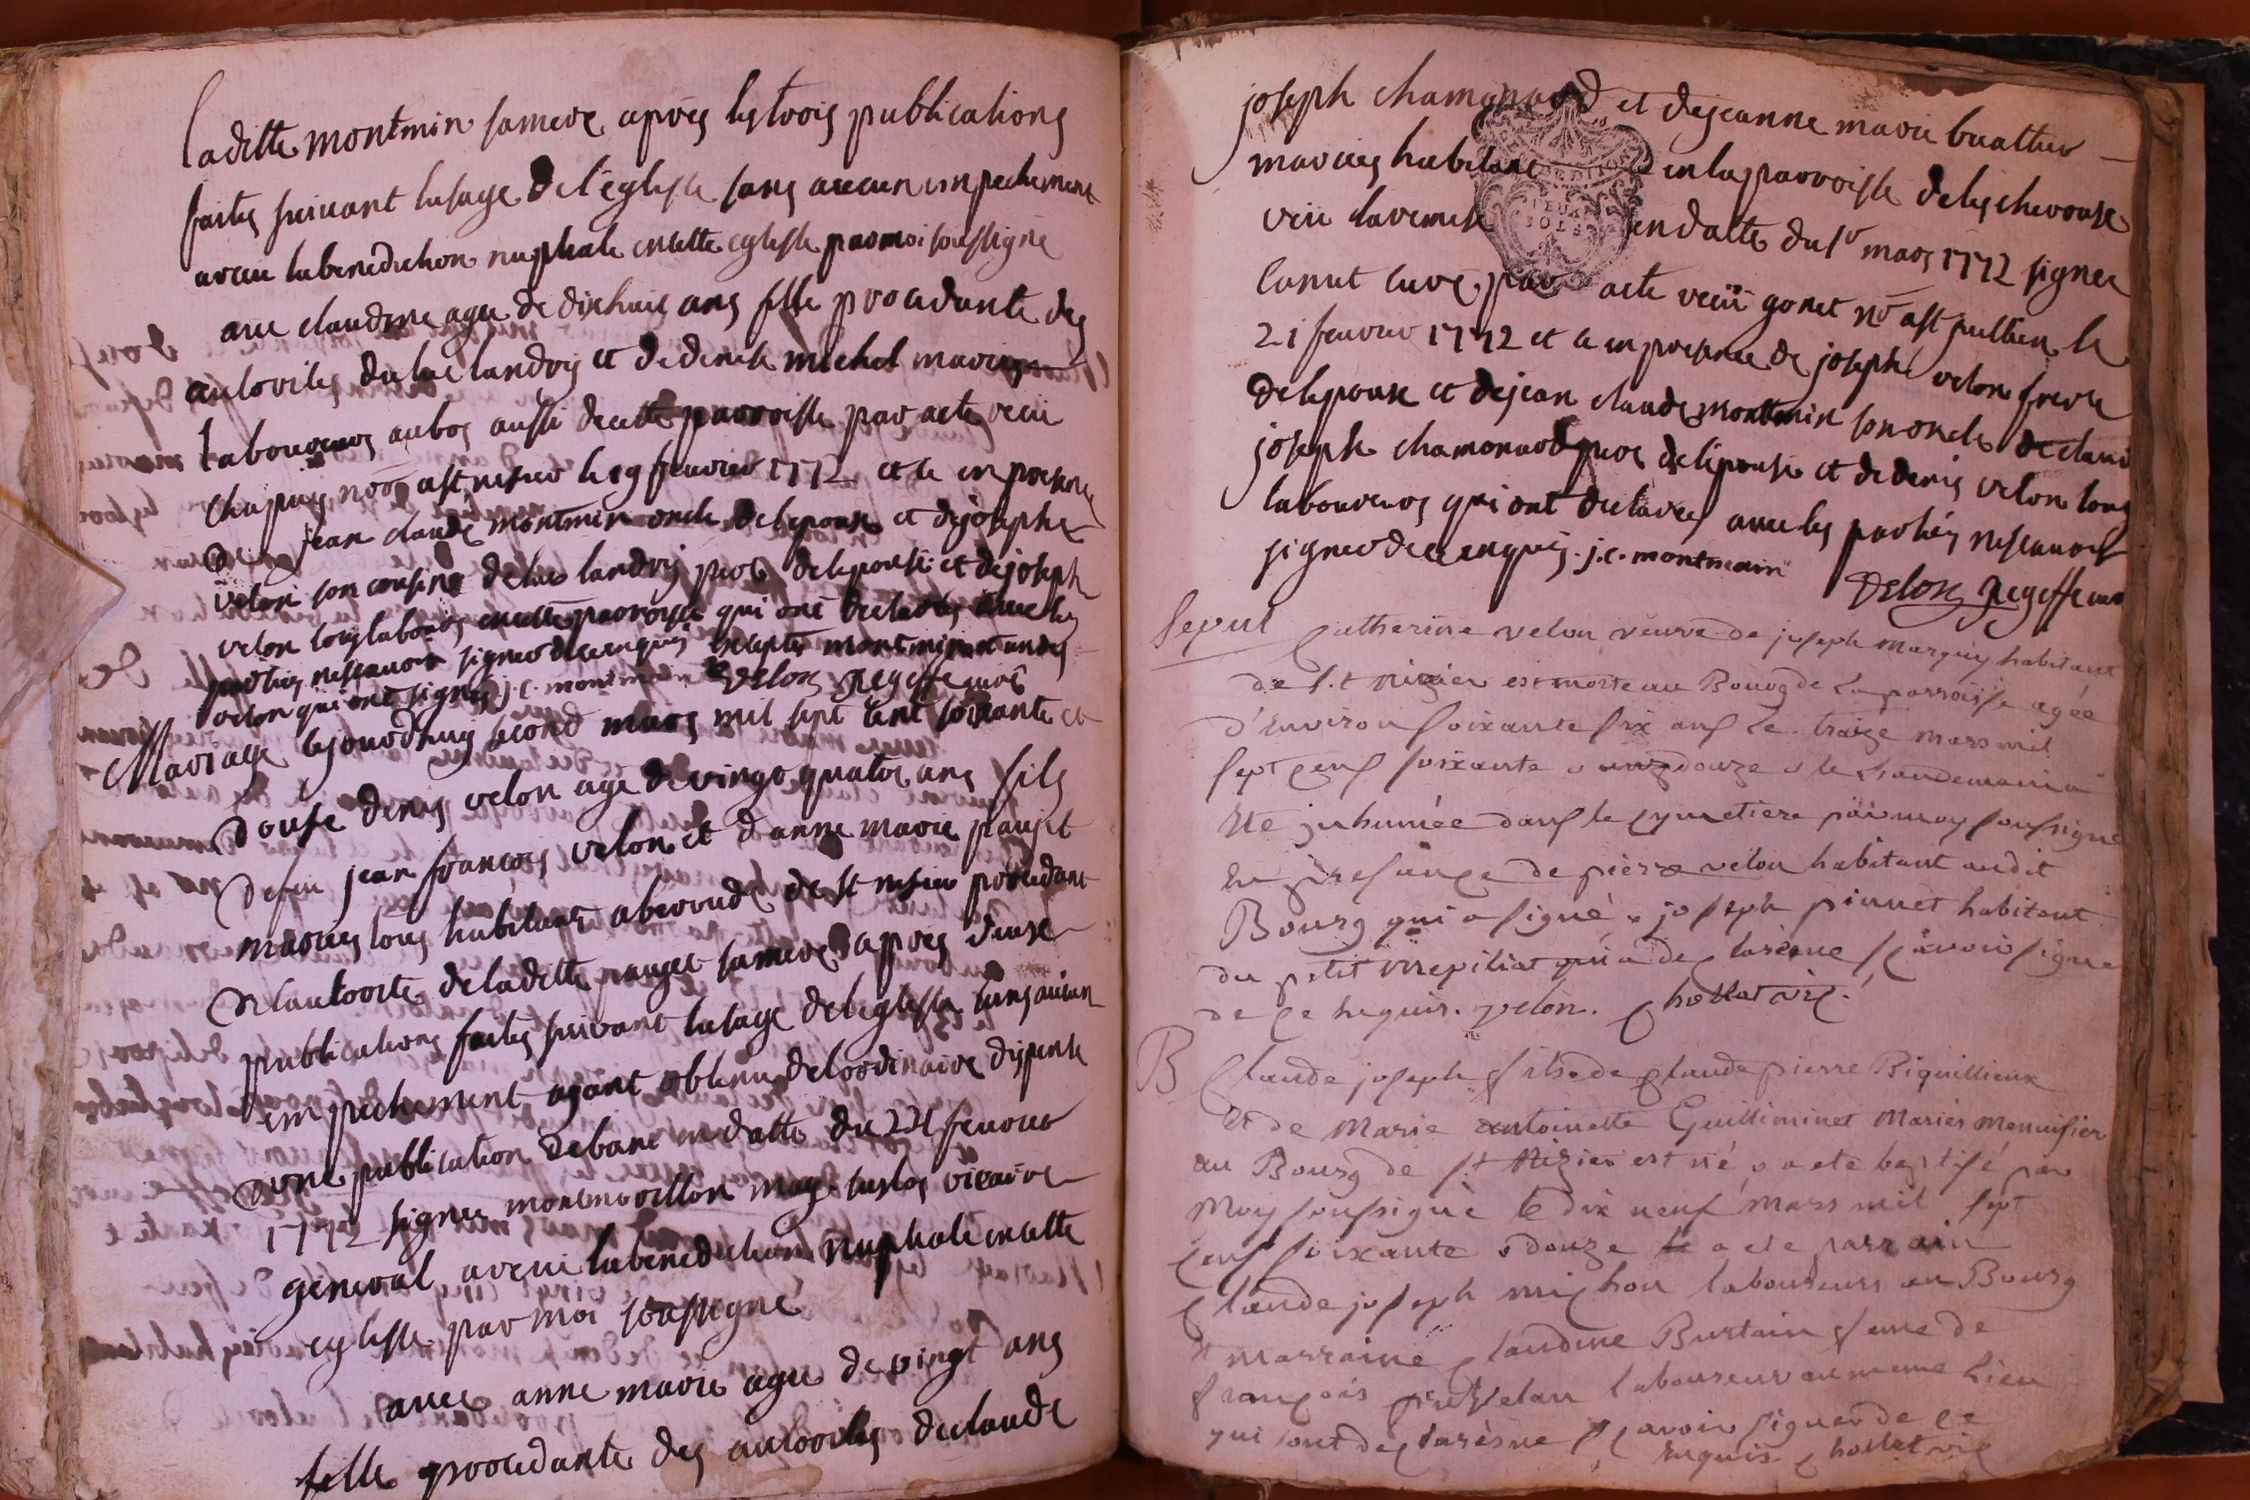 ladette montmin sa mere apres les trois publications
faites suivant lusage de l'eglise sans aucun empechement
areceu la benediction nuptiale en cette eglise par moi soussigné
avec claudine agee de dixhuit ans fille procedante des
autorites de luc landry et de denise michel maries
laboureurs aubos aussi de cette parroisse par acte receu
chapuy nore a st nisier le 19 fevrier 1772 et ce en presence
de jean claude montmin oncle de lepoux et de joseph
velon son cousin de luc landry pere de lepouse et de joseph
velon tous laboureurs en cette parroisse qui ont declares avec les
parties ne scavoir signer de ce enquis exceptés montmin et
velon qui ont signés j. c. montmain velon
Mariage lejourdhuy second mars mil sept cent soixante et
douse denis velon agé de vingt quatre ans fils
defeu jean françois velon et danne marie pauget
maries tous habitants de st nisier procedant
de lautorite de ladette pauget sa mere apres deux
publications faites suivant lusage de leglise sans aucun
empechement ayant obtenu de lordinaire dispense
dune publication de banc en datte du 24 fevrier
1772 signée vicaire
general, areceu la benediction nuptiale en cette
eglise par moi soussigné
avec anne marie agee de vingt ans
fille procedante des autorites de claude
joseph chamonard et de jeanne marie buattier
maries habitans en la parroisse de
veü la remise en datte du 1r mars 1772 signee
canut curé, par acte receü gonet nore a st jullien le
21 fevrier 1772 et ce en presence de joseph velon frere
de lepoux et de jean claude montmin son oncle de claude
joseph chamonard pere de lepouse et de denis velon tous
laboureurs qui ont declares avec les parties ne scavoir
signer de ce enquis. j. c. montmain
velon
Sepul Catherine velon veuve de joseph marguy habitant
de S.t nizier est morte au Bourg de la parroisse agée
d'Environ soixante six ans le traize mars mil
sept cens soixante douze & le landemain a
Eté inhumée dans le cymetiere par moy soussigné
En presance de pierre velon habitant audit
Bourg qui a signé & joseph pinnet habitant
du petit qui a declaré ne sçavoir signer
de ce requis. velon. chollat vic.
B Claude joseph fils de Claude pierre Biguillieux
et de Marie antoinette Guilliminet Mariés Menuisier
au Bourg de S.t Nizier est né & a eté baptisé par
Moy soussigné le dix neuf mars mil sept
cens soixante & douze a eté parrain
Claude joseph michon laboureurs au Bourg
et marraine Claudine Burtain feme de
françois velon laboureur au meme Lieu
qui ont declaré ne sçavoir signer de ce
requis chollat vic